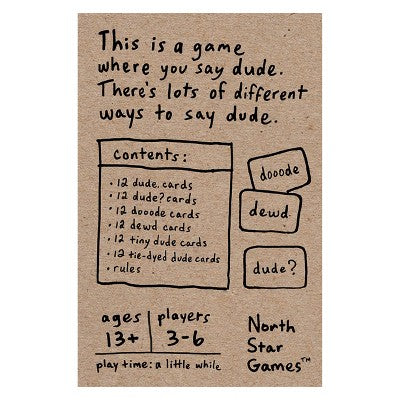 This is a game
where you say dude.
There's lots of different
ways to say dude.
Contents:
• 12 dude cards
• 12 dude? cards
• 12 dooode cards
• 12 dewd cards
• 12 tiny dude cards
• 12 tie-dyed dude cards
• rules
dooode
dewd
dude?
ages players
13+ 3-6
play time: a little while
North
Star
Games™